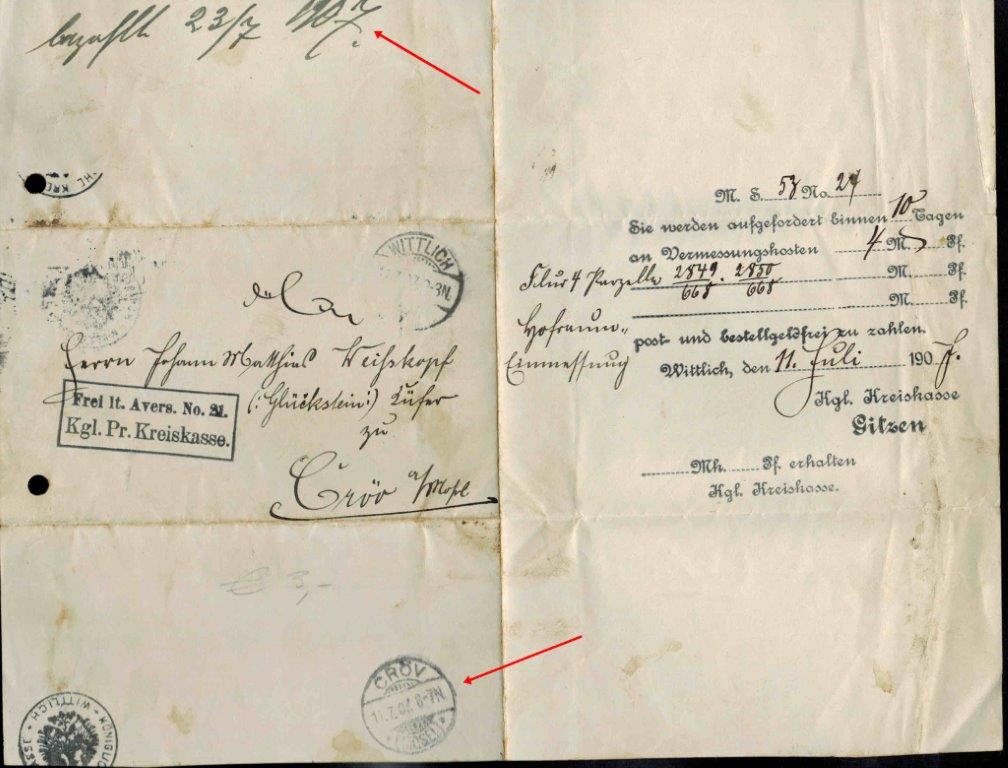 bezahlt 23/7 1907.
WITTLICH
An
Herrn Johann Matthias Weiskopf
(:Glückstein:) Küfer
zu
Cröv a/Mosl
Frei lt. Avers. No. 21.
Kgl. Pr. Kreiskasse.
€ 3,-
CRÖV
(MOSEL)
WITTLICH
M. S. 53 No. 27
Sie werden aufgefordert binnen 10 Tagen
an Vermessungskosten 4 M. Pf.
Flur 4 Parzelle 2849/668 . 2850/668 M. Pf.
M. Pf.
Hofraum-
Einmessung
post- und bestellgeldfrei zu zahlen.
Wittlich, den 11. Juli 1907.
Kgl. Kreiskasse
Gitzen
Mk. Pf. erhalten
Kgl. Kreiskasse.